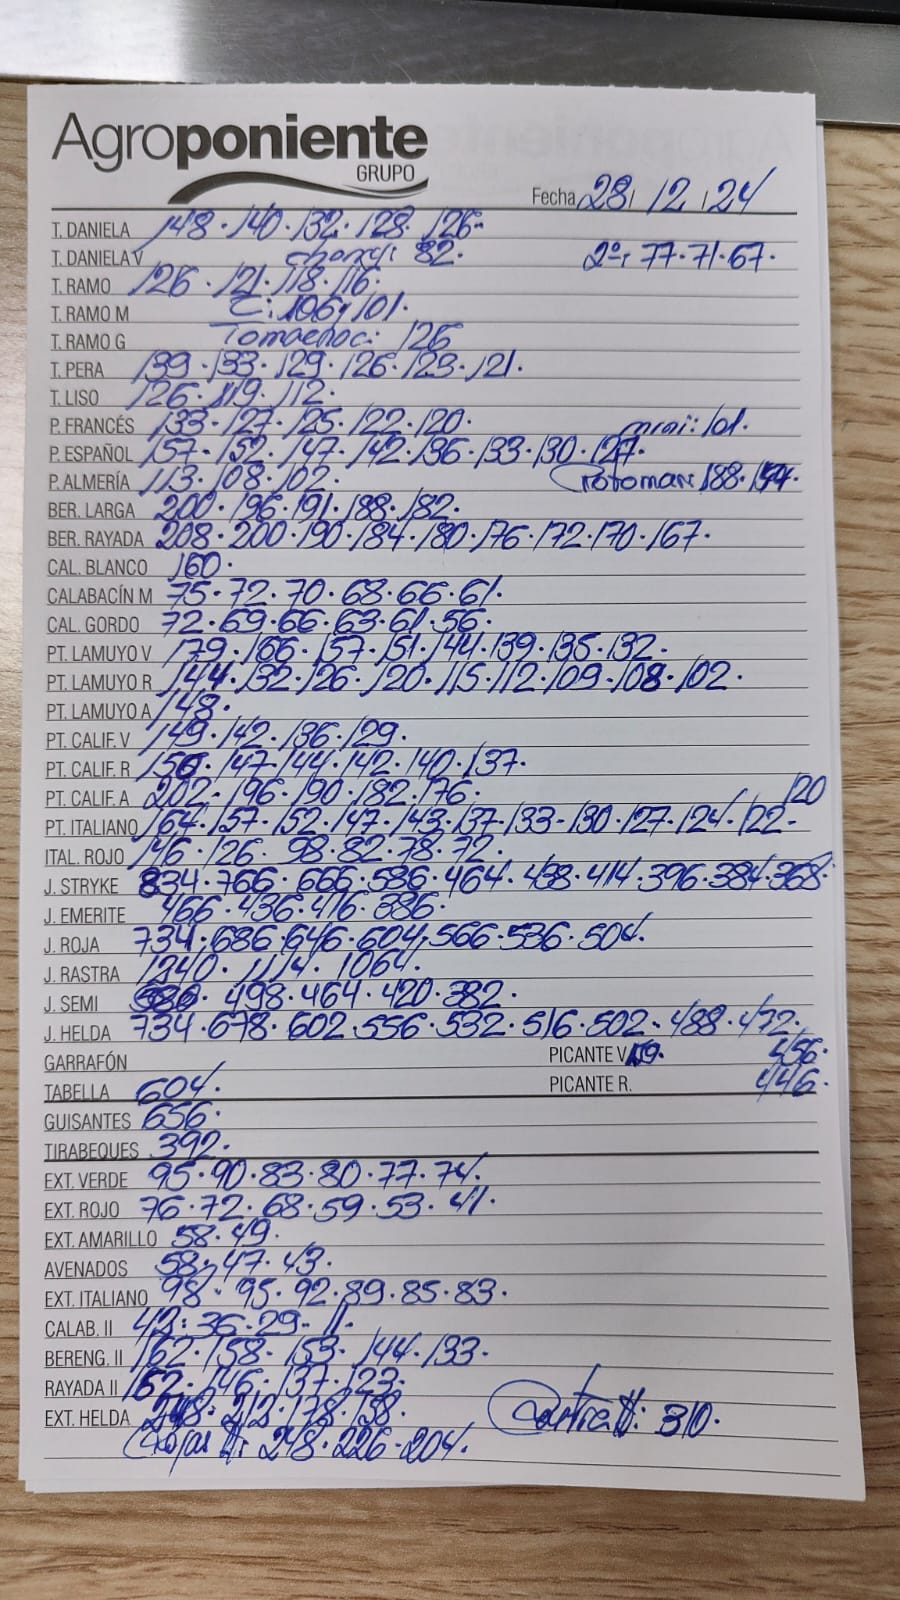 Agroponiente
GRUPO
Fecha 28/ 12 /24
T. DANIELA 148 · 140 · 132 · 128 · 126 ·
T. DANIELA V 82 · 2º: 77 · 71 · 67 ·
T. RAMO 126 · 121 · 118 · 116 ·
T. RAMO M C: 106 y 101 ·
T. RAMO G 126
T. PERA 139 · 133 · 129 · 126 · 123 · 121 ·
T. LISO 126 · 119 · 112 ·
P. FRANCÉS 133 · 127 · 125 · 122 · 120 · mini: 101 ·
P. ESPAÑOL 157 · 152 · 147 · 142 · 136 · 133 · 130 · 127 ·
P. ALMERÍA 113 · 108 · 102 · 188 ·
BER. LARGA 200 · 196 · 191 · 188 · 182 ·
BER. RAYADA 208 · 200 · 190 · 184 · 180 · 176 · 172 · 170 · 167 ·
CAL. BLANCO 160 ·
CALABACÍN M 75 · 72 · 70 · 68 · 66 · 61 ·
CAL. GORDO 72 · 69 · 66 · 63 · 61 · 56 ·
PT. LAMUYO V 179 · 166 · 157 · 151 · 144 · 139 · 135 · 132 ·
PT. LAMUYO R 144 · 132 · 126 · 120 · 115 · 112 · 109 · 108 · 102 ·
PT. LAMUYO A 148 ·
PT. CALIF. V 149 · 142 · 136 · 129 ·
PT. CALIF. R 150 · 147 · 144 · 142 · 140 · 137 ·
PT. CALIF. A 202 · 196 · 190 · 182 · 176 · 120
PT. ITALIANO 164 · 157 · 152 · 147 · 143 · 137 · 133 · 130 · 127 · 124 · 122 ·
ITAL. ROJO 146 · 126 · 98 · 82 · 78 · 72 ·
J. STRYKE 834 · 766 · 666 · 586 · 464 · 438 · 414 · 396 · 384 · 368 ·
J. EMERITE 466 · 436 · 416 · 386 ·
J. ROJA 734 · 686 · 646 · 604 · 566 · 536 · 504 ·
J. RASTRA 1240 · 1114 · 1064 ·
J. SEMI 498 · 464 · 420 · 382 ·
J. HELDA 734 · 678 · 602 · 556 · 532 · 516 · 502 · 488 · 472 ·
GARRAFÓN PICANTE V 456 ·
TABELLA 604 · PICANTE R. 446 ·
GUISANTES 656 ·
TIRABEQUES 392 ·
EXT. VERDE 95 · 90 · 83 · 80 · 77 · 74 ·
EXT. ROJO 76 · 72 · 68 · 59 · 53 · 41 ·
EXT. AMARILLO 58 · 49 ·
AVENADOS 58 · 47 · 43 ·
EXT. ITALIANO 98 · 95 · 92 · 89 · 85 · 83 ·
CALAB. II 42 · 36 · 29 · 11 ·
BERENG. II 162 · 158 · 153 · 144 · 133 ·
RAYADA II 152 · 146 · 137 · 123 ·
EXT. HELDA 248 · 212 · 178 · 158 · 310 ·
Rojas II: 248 · 226 · 204 ·